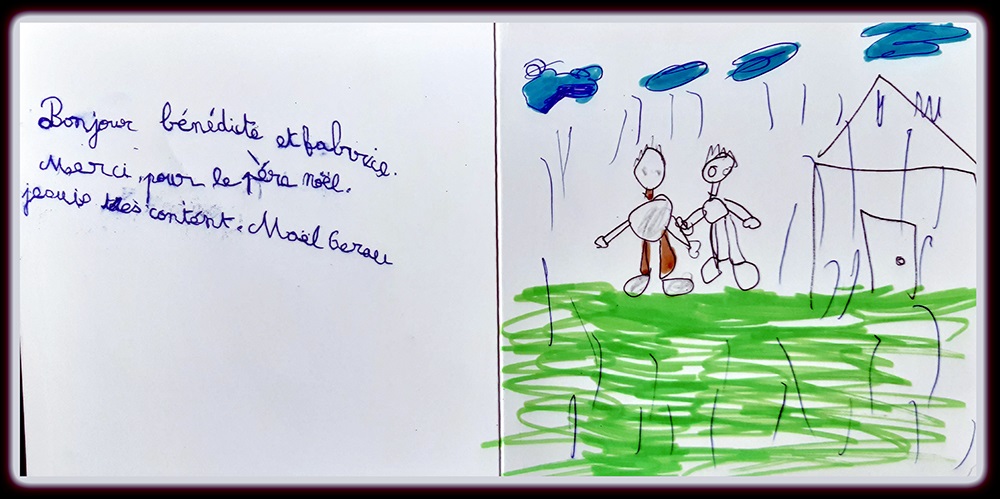 Bonjour bénédicte et fabrice.
Merci, pour le père noël.
jesuis très content. Maël Gerau